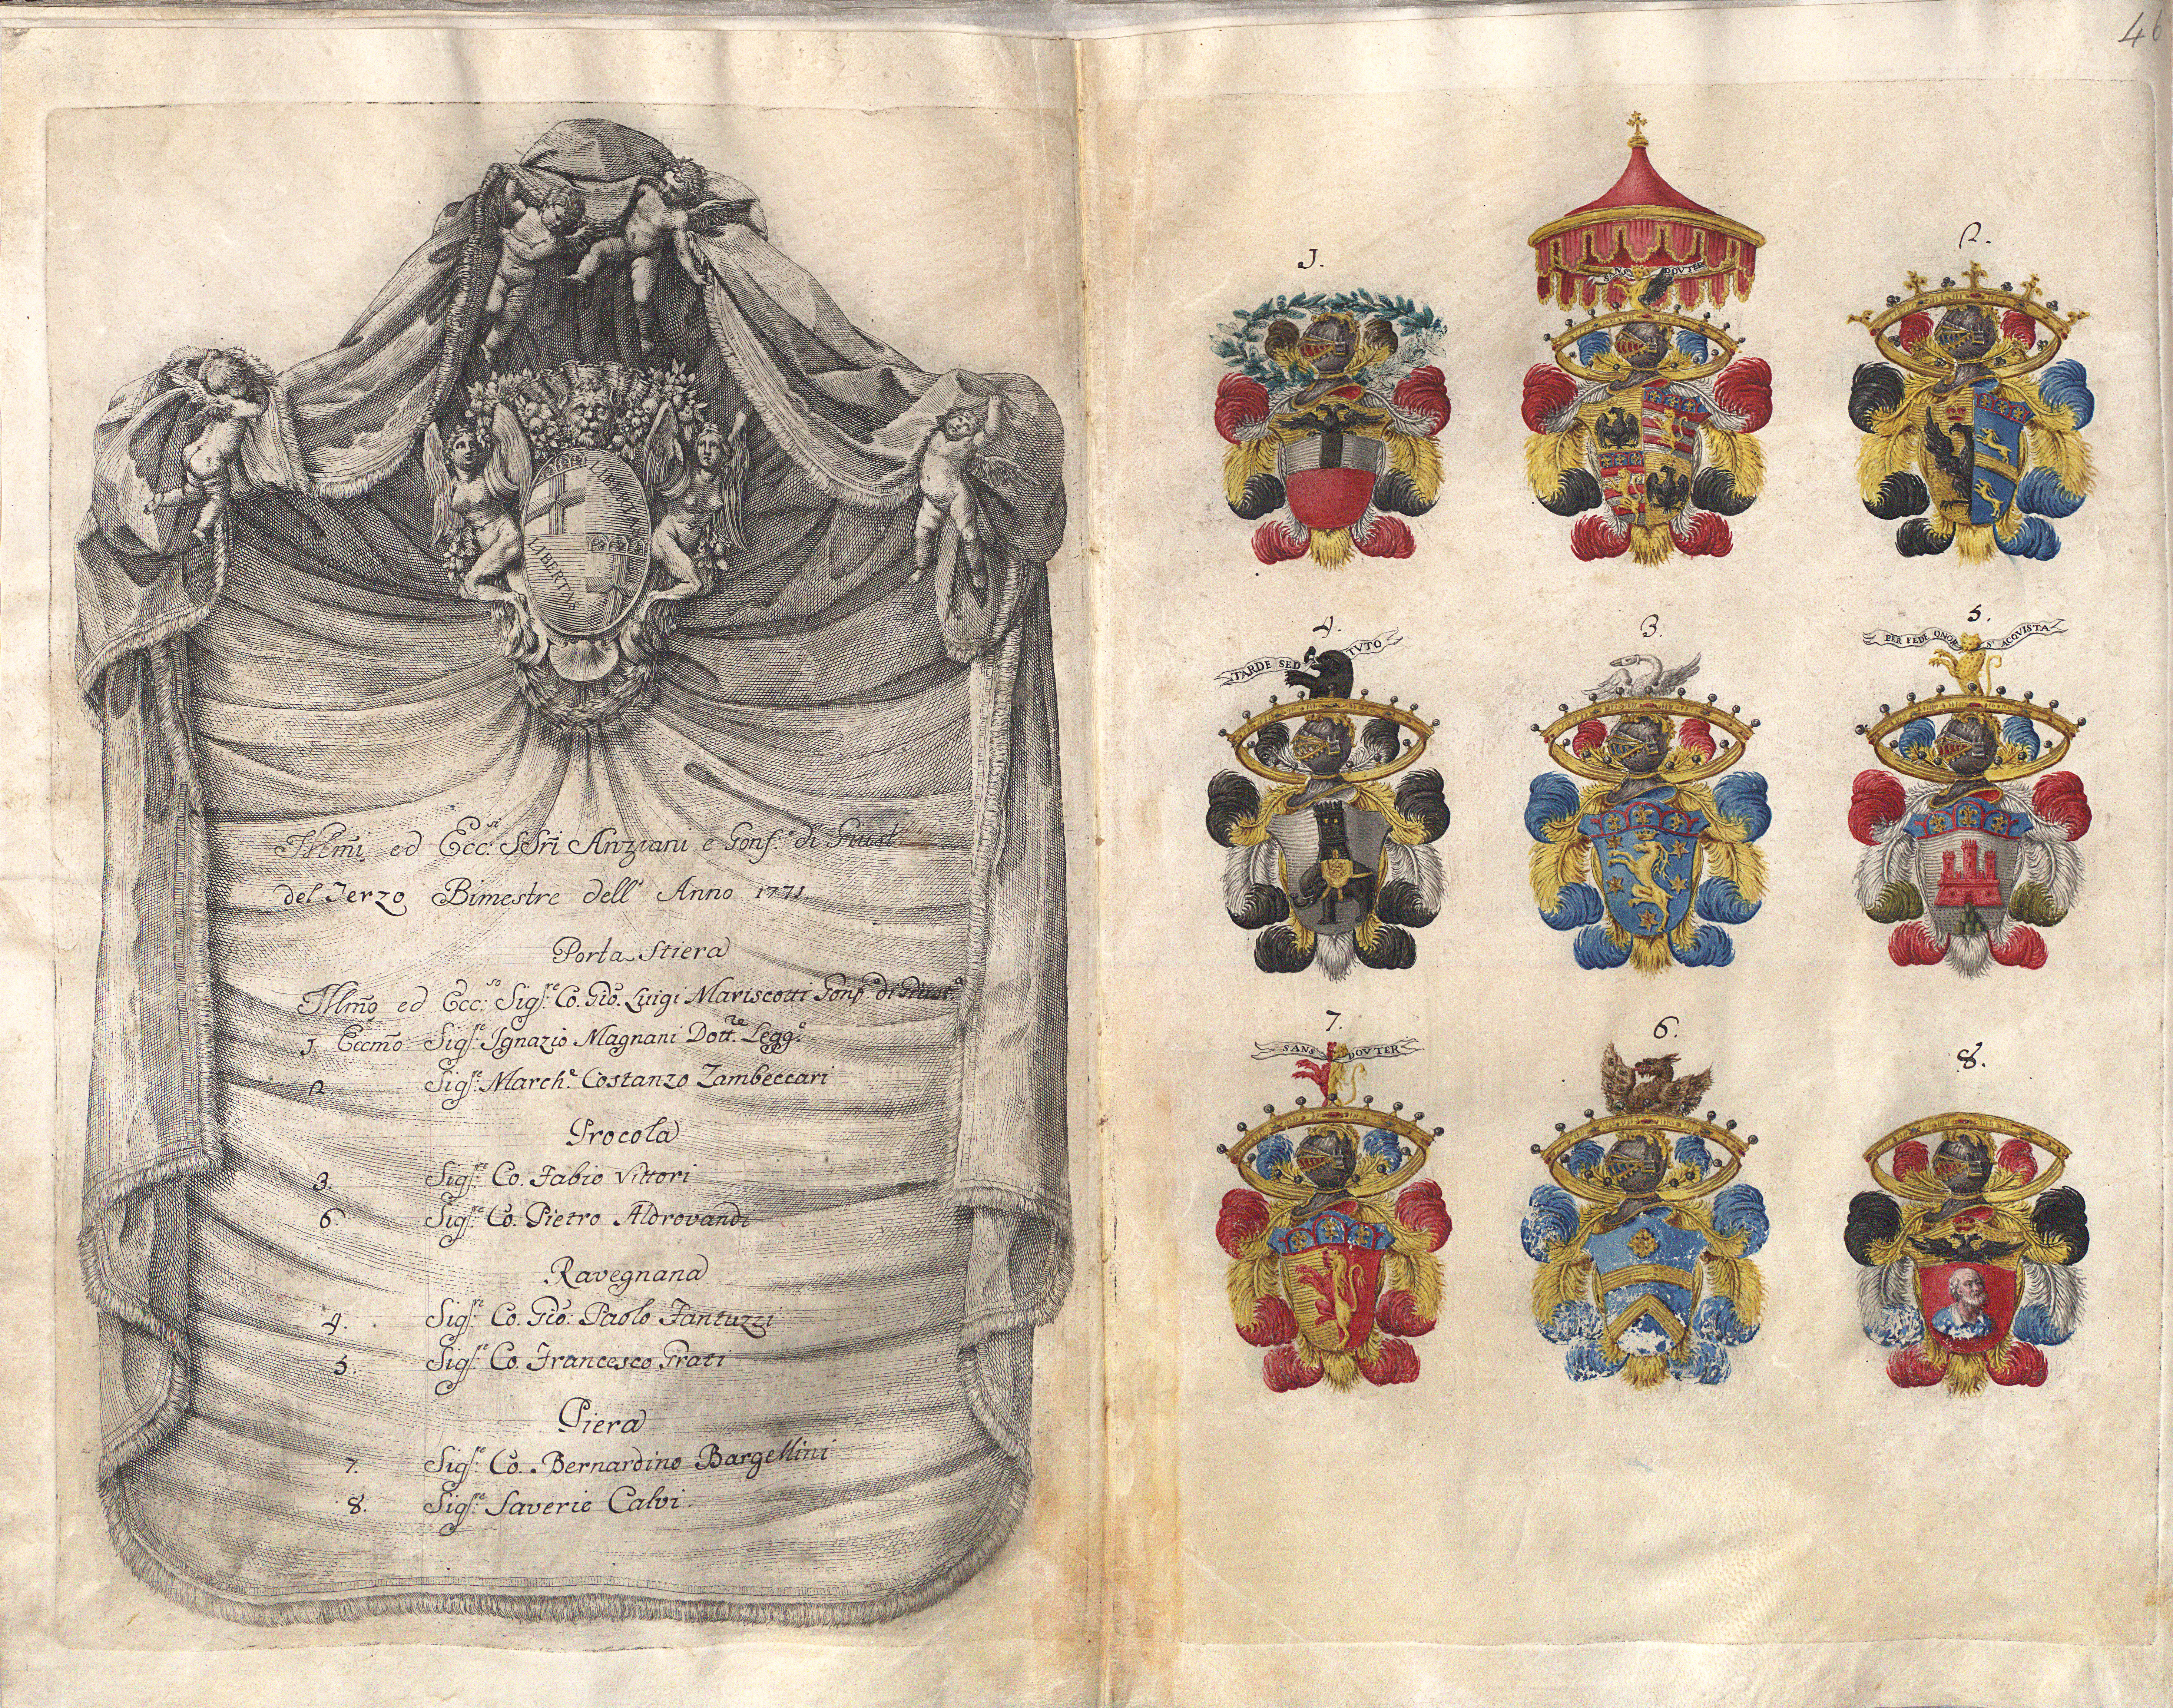 46
LIBERTAS
LIBERTAS
Illmi ed Ecc:si SSri Anziani e Gonf.e di Giust.
del Terzo Bimestre dell' Anno 1771.
Porta Stiera
Illmo ed Ecc:so Sigr.e Co. Gio. Luigi Mariscotti Gonf.e di Giust.a
1 Eccmo Sigr.e Ignazio Magnani Dott.re Legg.e
2 Sigr.e March.e Costanzo Zambeccari
Procola
3. Sigr.e Co. Fabio Vittori
6 Sigr.e Co. Pietro Aldrovandi
Ravegnana
4. Sigr.e Co. Gio: Paolo Fantuzzi
5. Sigr.e Co. Francesco Grati
Piera
7. Sigr.e Co. Bernardino Bargellini
8. Sigr.e Saverie Calvi.
1.
SANS DOVTER
2.
4.
TARDE SED TVTO
3.
5.
PER FEDE ONOR S' ACQVISTA
7.
SANS DOVTER
6.
8.